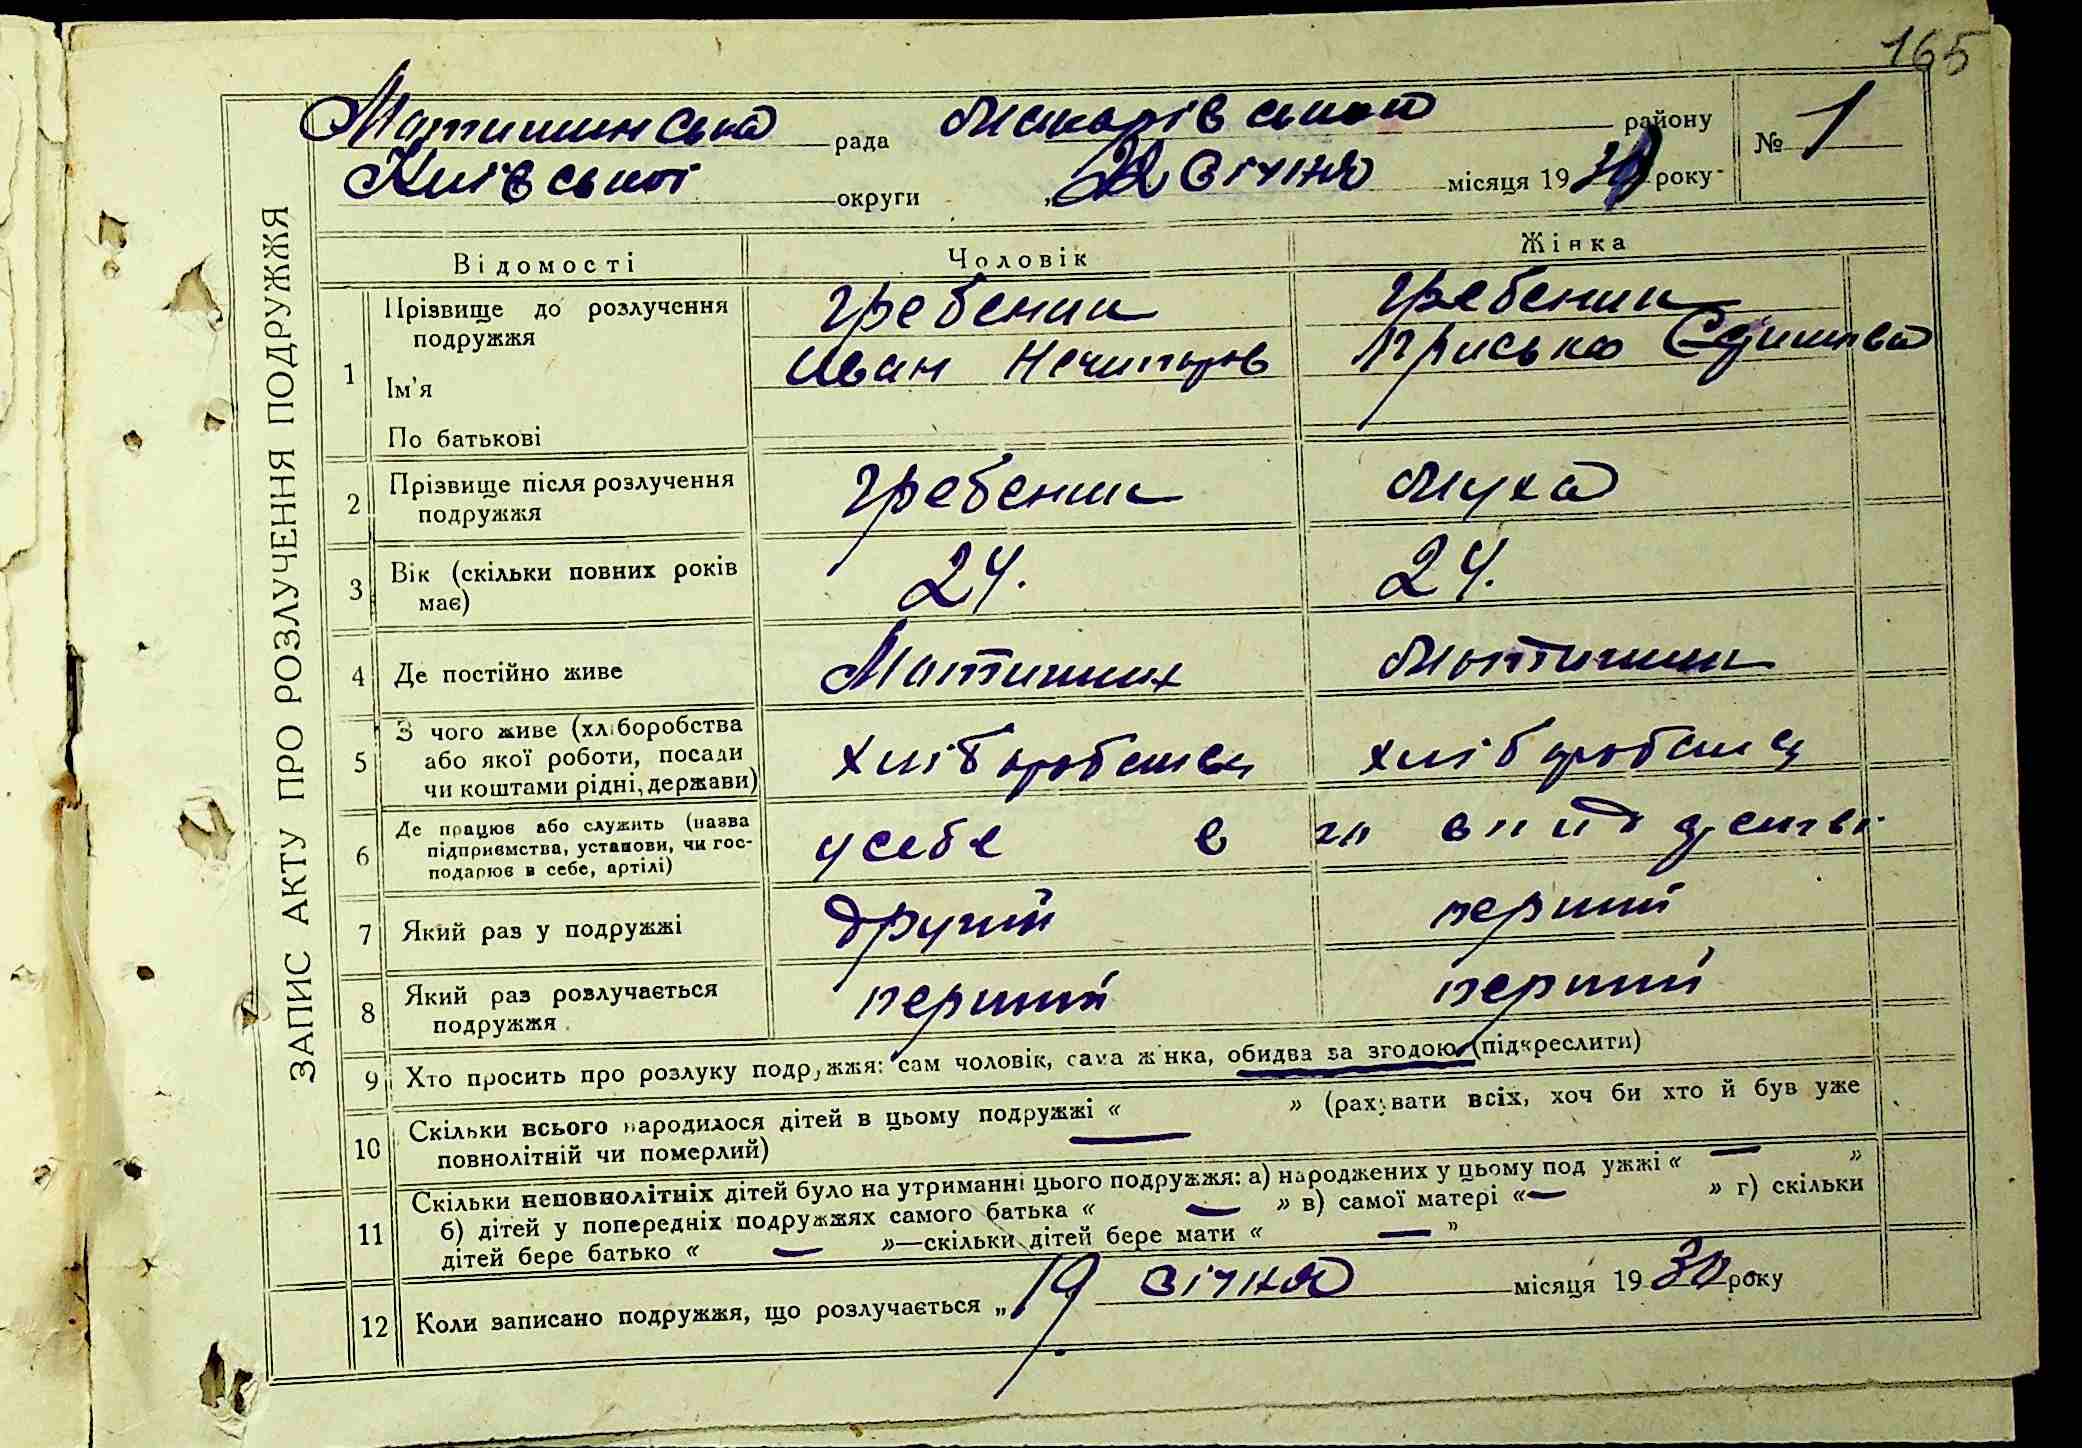 165
Мотижинська рада Макарівського району № 1
Київської округи „22 Січня місяця 1930 року
ЗАПИС АКТУ ПРО РОЗЛУЧЕННЯ ПОДРУЖЖЯ
Відомості Чоловік Жінка
1 Прізвище до розлучення подружжя Гребеник Гребеник
Ім'я Иван Нечипоров Приська
По батькові
2 Прізвище після розлучення подружжя Гребеник Муха
3 Вік (скільки повних років має) 24. 24.
4 Де постійно живе Мотижин Мотижин
5 З чого живе (хліборобства або якої роботи, посади чи коштами рідні, держави) хліборобства хліборобства
6 Де працює або служить (назва підприємства, установи, чи господарює в себе, артілі) у себе в
7 Який раз у подружжі другий перший
8 Який раз розлучається подружжя перший перший
9 Хто просить про розлуку подружжя: сам чоловік, сама жінка, обидва за згодою (підкреслити)
10 Скільки всього народилося дітей в цьому подружжі « — » (рахувати всіх, хоч би хто й був уже
повнолітній чи померлий)
11 Скільки неповнолітніх дітей було на утриманні цього подружжя: а) народжених у цьому подружжі « — »
б) дітей у попередніх подружжях самого батька « — » в) самої матері « — » г) скільки
дітей бере батько « — »—скільки дітей бере мати « — »
12 Коли записано подружжя, що розлучається „ 19 січня місяця 1930 року